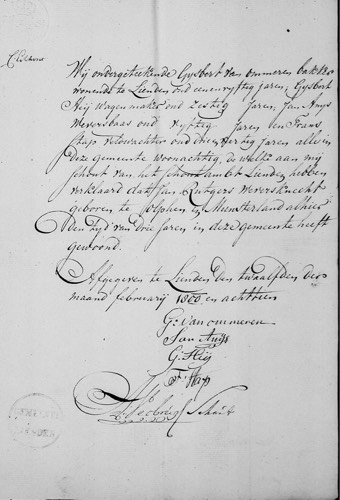 Wij ondergeteekende Gysbert van ommeren bakker
wonende te Lienden oud eenenvyftig jaren, Gysbert
Heij wagenmaker oud zestig jaren, Jan Huys
Weversbaas oud vyftig jaren en Frans
Stap veldwachter oud drie en dertig jaren alle in
deze gemeente woonachtig, de welke aan my
schout van het schoutambt Lienden hebben
verklaard dat Jan Rutgers Weversknecht
geboren te Olphen in Munsterland alhier
den tyd van drie jaren in deze gemeente heeft
gewoond.
Afgegeven te Lienden den twaalfden der
maand february 1800 en achttien
G: van ommeren
Jan Huys
G: Heij
F: Stap
Schout